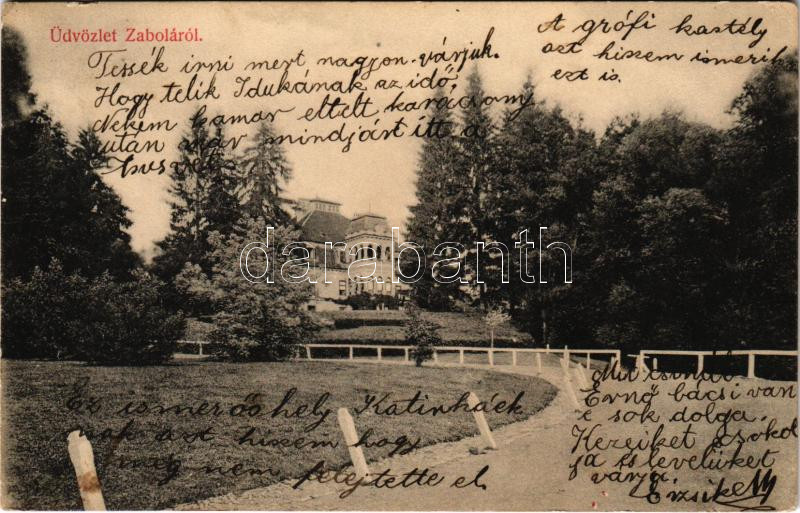 Üdvözlet Zaboláról.
A grófi kastély
azt hiszem ismerik
ezt is.
Tessék irni mert nagyon várjuk.
Hogy telik Idukának az idő,
Nekem hamar eltelt, karácsony
után már mindjárt itt a
husvét
darabanth
Ez ismerős hely Katinkáék
nak azt hiszem hogy
még nem felejtette el.
Mit csinál
Ernő bácsi van
e sok dolga.
Kezeiket csokol
ja és levelüket
várja.
Erzsike